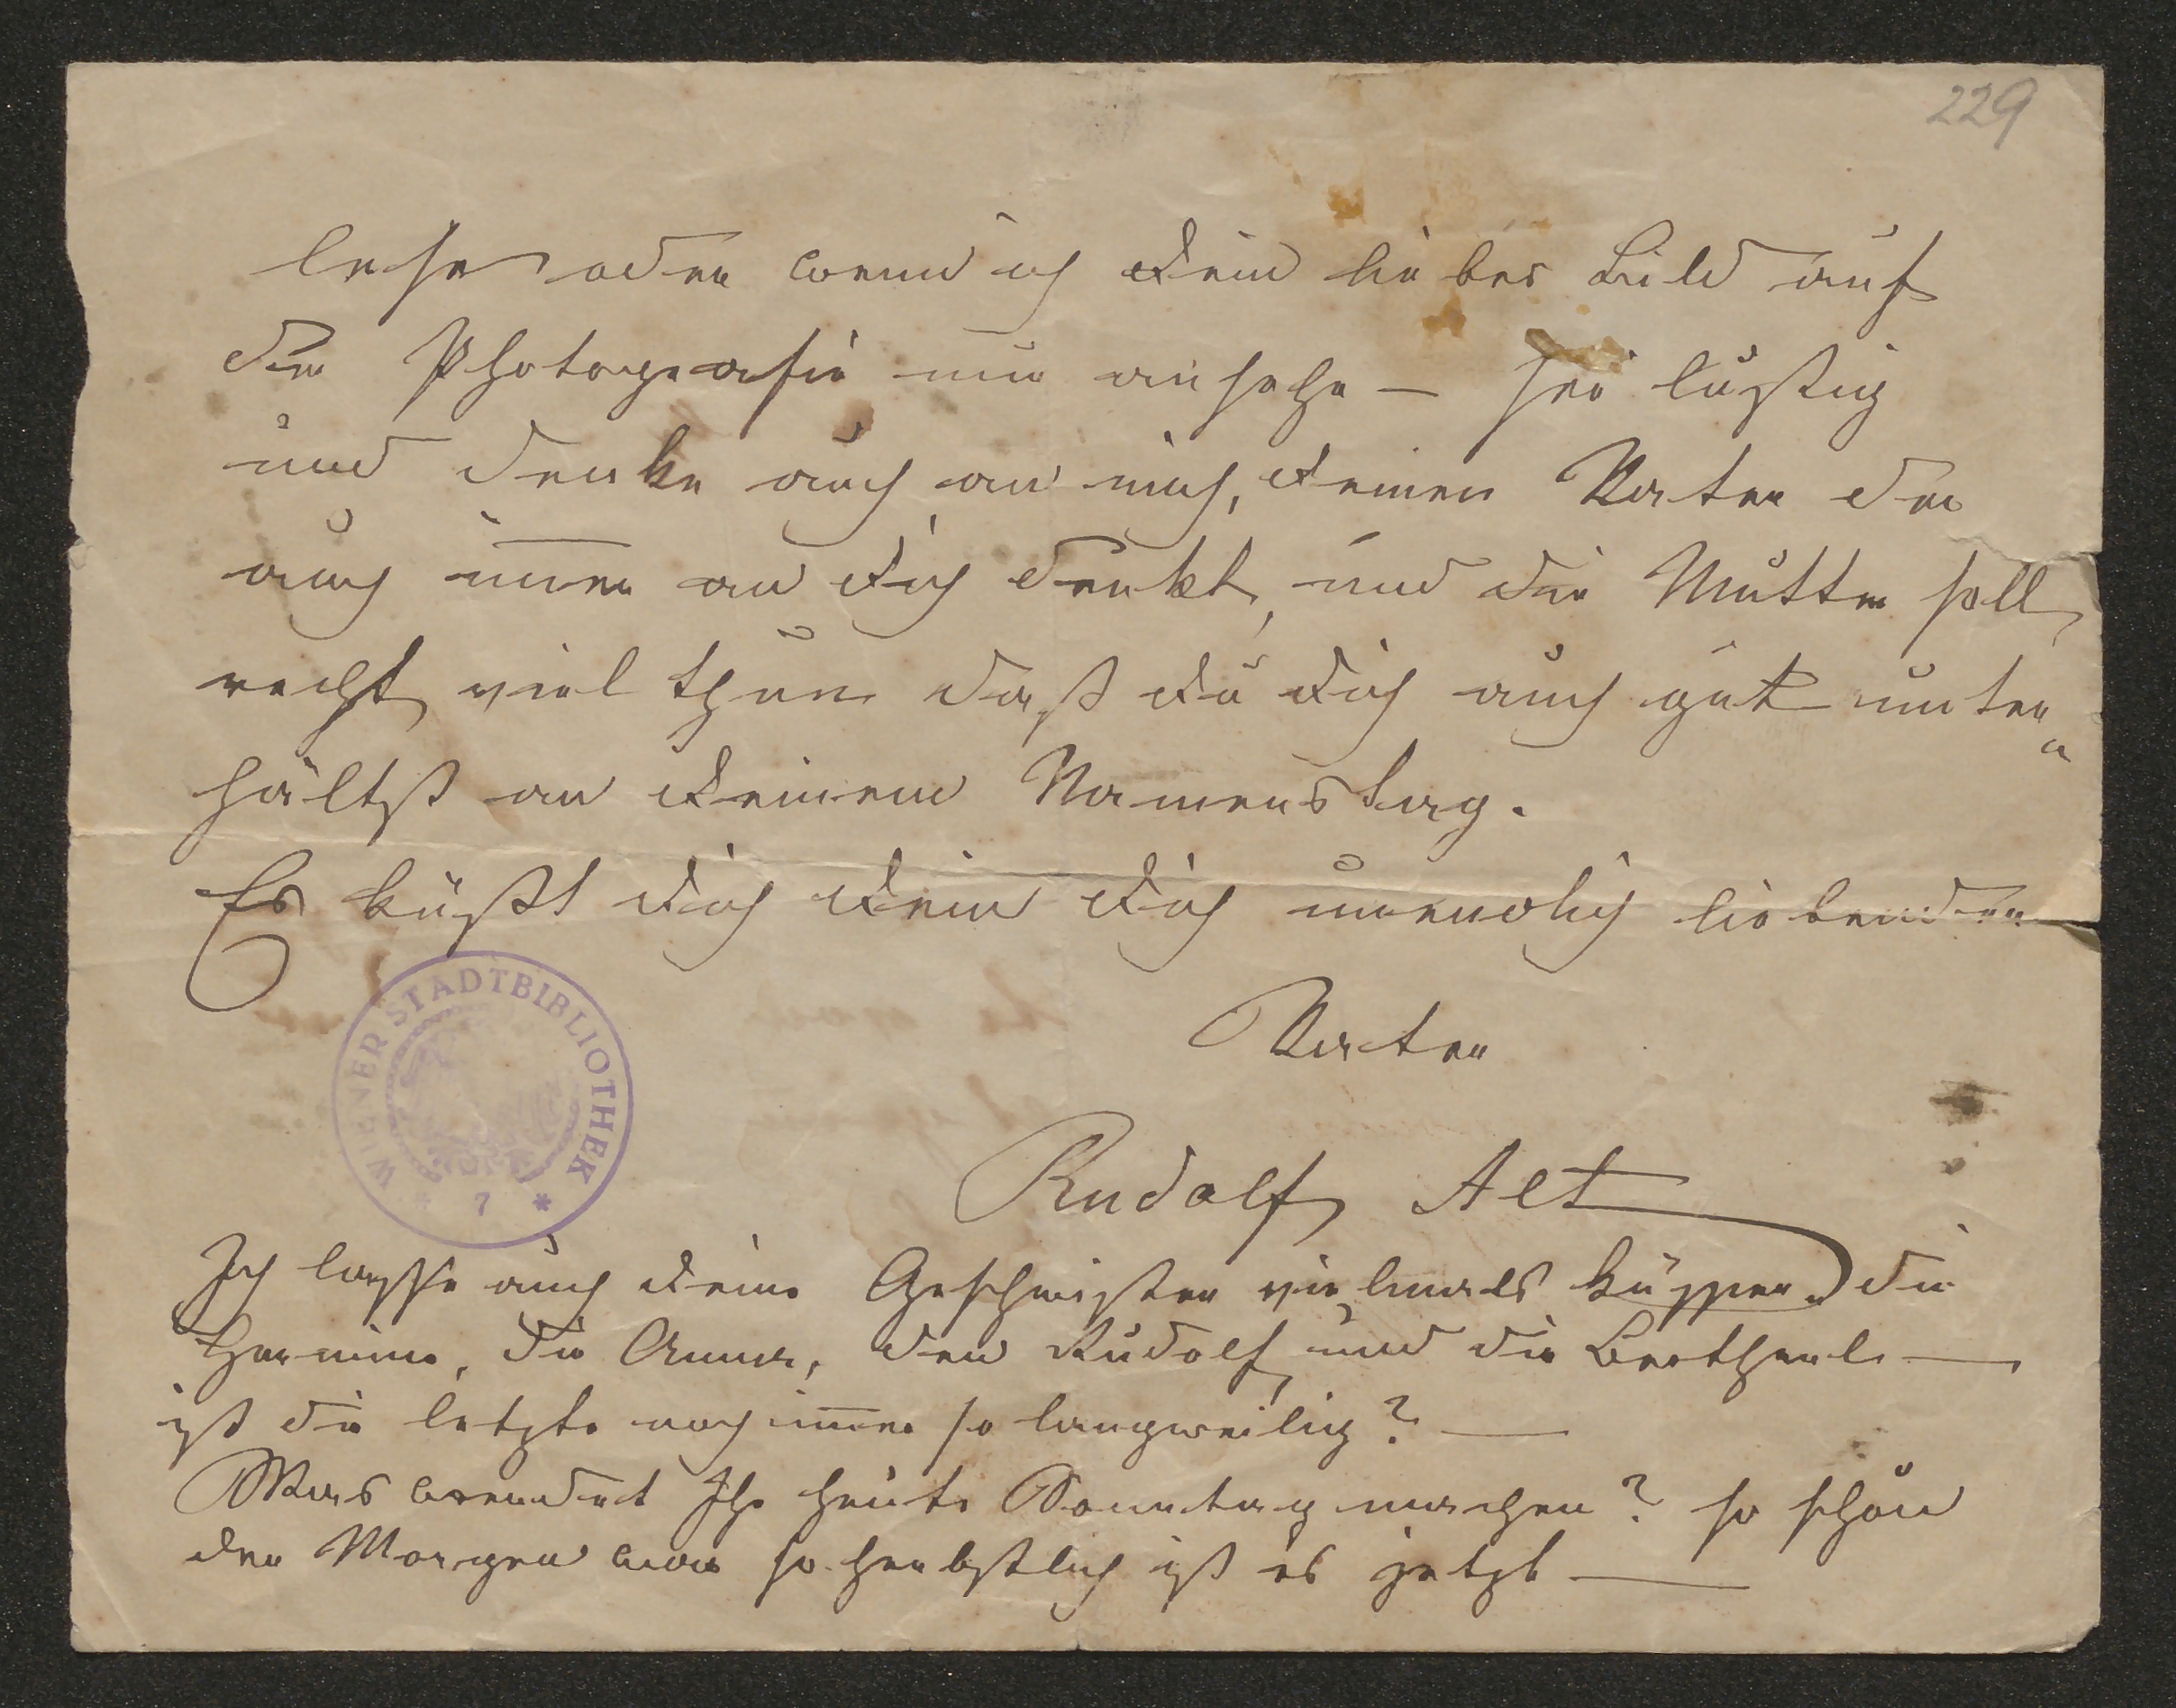 229
lese oder wenn ich Dein liebes Bild auf
der Photografie nur ansehe – sei lustig
und denke auch an mich, Deinen Vater der
auch im̅er an Dich denkt, und die Mutter soll
recht viel thun daß Du Dich auch gut unter„
hältst an Deinem Namenstag.
Es küßt Dich Dein Dich unendlich liebender
Vater
WIENER STADTBIBLIOTHEK
* 7 *
Rudolf Alt
Ich lasse auch Deine Geschwister vielmals küssen. die
Hermine, die Anna, den Rudolf und die Bertherl –
ist die letzte noch im̅er so langweilig? –
Was werdet Ihr heute Sonntag machen? so schön
der Morgen war so herbstlich ist es jetzt –